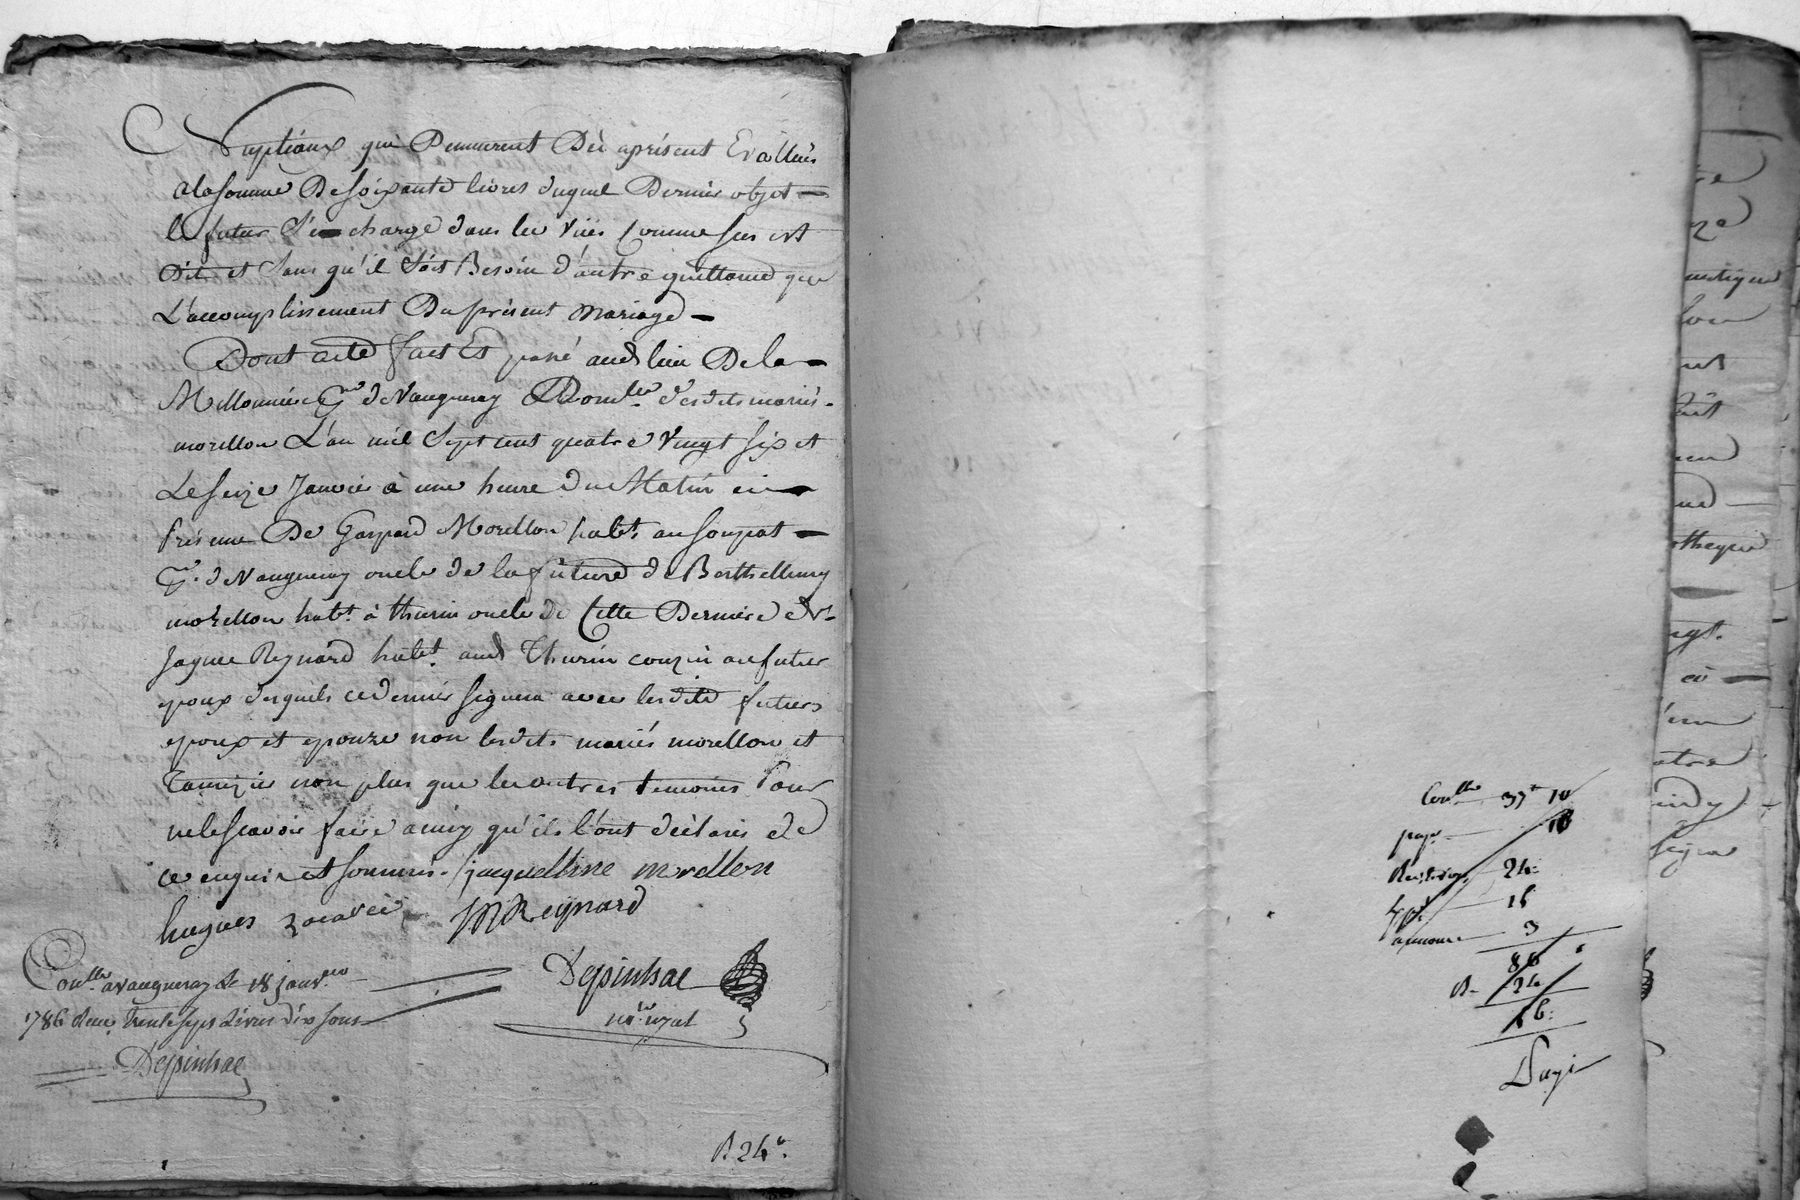 Nuptiaux qui Demeurent Dès aprésent Evallués
alasomme De soixante livres duquel Dernier objet
le futur s'en charge dans les vües comme sus est
Dit et sans qu'il soit Besoin d'autre quittance que
L'accomplissement Du présent mariage
Dont acte fait Et passé aud lieu De la
Millonniere de Vaugneray Domlle desdits mariés
morellon L'an mil sept cent quatre vingt six et
Le seize Janvier à une heure du Matin en
présence De Gaspard Morellon habt. au soupat
de Vaugneray oncle de la future de Barthellemy
morellon habt. à thurin oncle de Cette Derniere et
Jaque Reynard habt. aud Thurin couzin au futur
epoux desquels ce dernier signera avec lesdits futurs
epoux et epouze non lesdits mariés morellon et
non plus que les autres temoins Pour
ne le scavoir faire ainsy qu'ils l'ont déclaré de
ce enquis et sommés. jacquelline morellon
hugues Reynard
Conlle. a vaugneray le 18 janv.
1786 Reçu trente sept Livres dix sous
Depinhac
Depinhac
no.re royal
R. 24
Conlle 37 10
pap. 18
24
15
3
R. 24
Payé